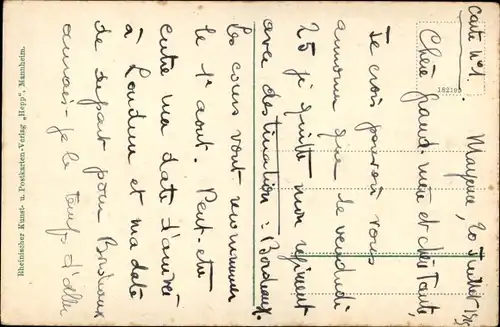 Carte N° 1.
Mayence, 20 Juillet
Chère grand-mère et chère Tante,
Je crois pouvoir vous
annoncer que le vendredi
25 je quitte mon régiment
avec destination : Bordeaux.
Les cours vont recommencer
le 1er aout. Peut-être
entre ma date d'arrivée
à Loudun et ma date
de départ pour Bordeaux
aurais-je le temps d'aller
182195
Rheinischer Kunst- u. Postkarten-Verlag „Hepp", Mannheim.